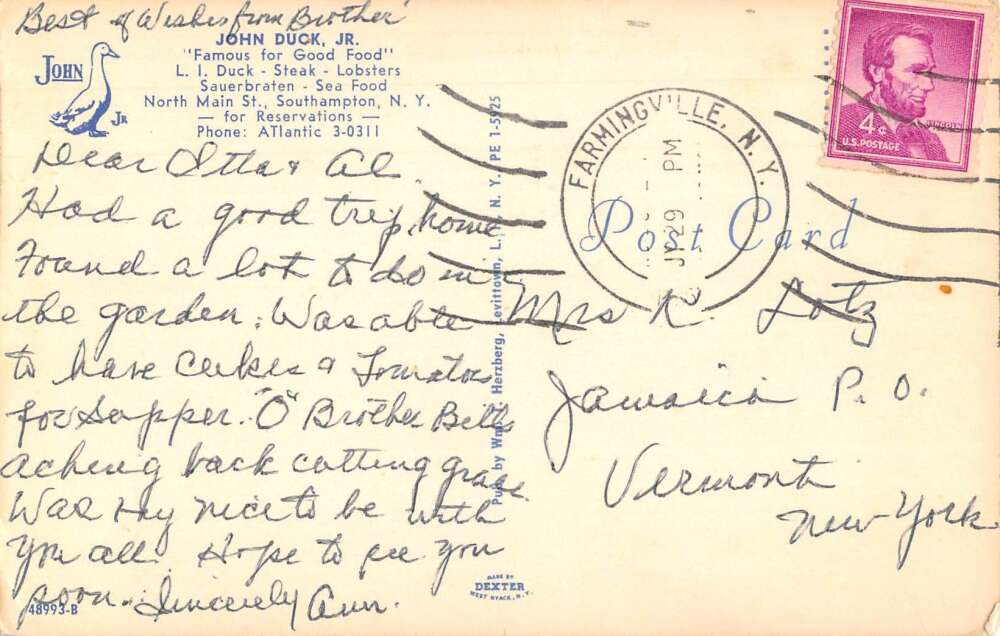 Best of Wishes from Brother
JOHN DUCK, JR.
"Famous for Good Food"
L. I. Duck - Steak - Lobsters
Sauerbraten - Sea Food
North Main St., Southampton, N. Y.
— for Reservations —
Phone: ATlantic 3-0311
JOHN
JR
Dear Etta & Al
Had a good trip home
Found a lot to do in
the garden. Was able
to have cukes & Tomatoes
for supper. "O" Brother Bills
aching back cutting grass
Was very nice to be with
you all. Hope to see you
soon. Sincerely Ann.
48993-B
Pub. by Wm. Herzberg, Levittown, L. I., N. Y. PE 1-5925
MADE BY
DEXTER
WEST NYACK, N. Y.
FARMINGVILLE, N. Y.
29 PM
4¢
LINCOLN
U.S. POSTAGE
Post Card
Mrs K. Lotz
Jamaica P. O.
Vermont
New York